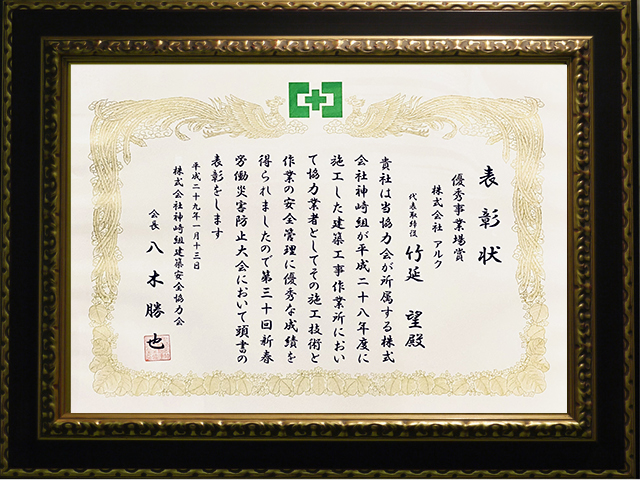 表彰状
優秀事業場賞
株式会社 アルク
代表取締役 竹延 望殿
貴社は当協力会が所属する株式
会社神崎組が平成二十八年度に
施工した建築工事作業所におい
て協力業者としてその施工技術と
作業の安全管理に優秀な成績を
得られましたので第三十回新春
労働災害防止大会において頭書の
表彰をします
平成二十九年一月十三日
株式会社神崎組建築安全協力会
会長 八木勝也